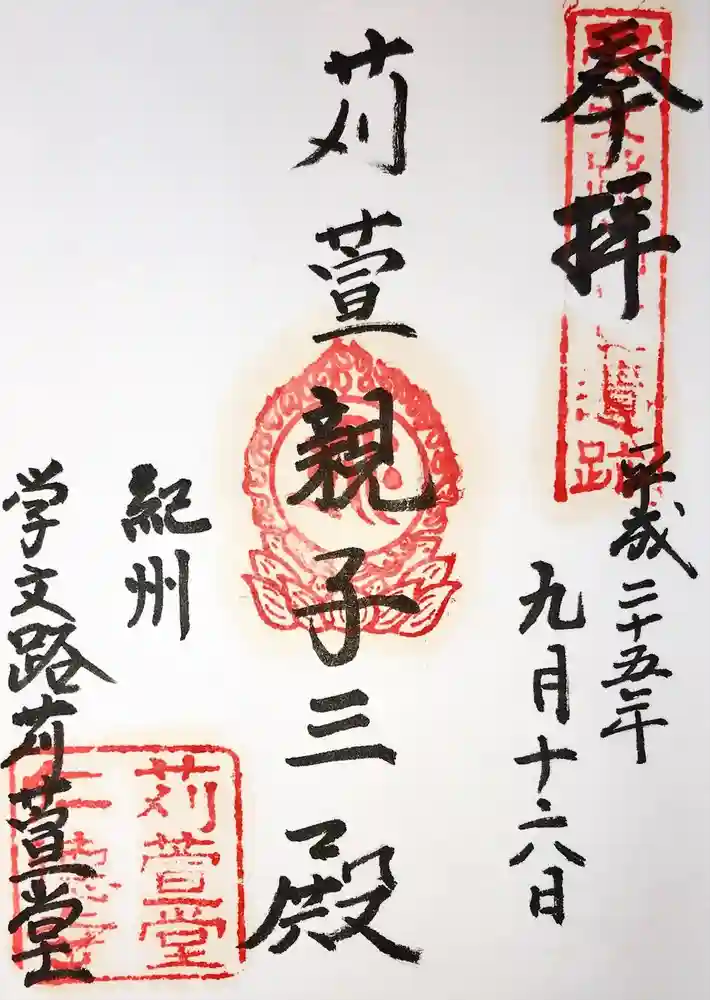 奉拝
遺跡
平成二十五年
九月十二八日
苅萱親子三殿
紀州
学文路苅萱堂
苅萱堂
仁徳寺